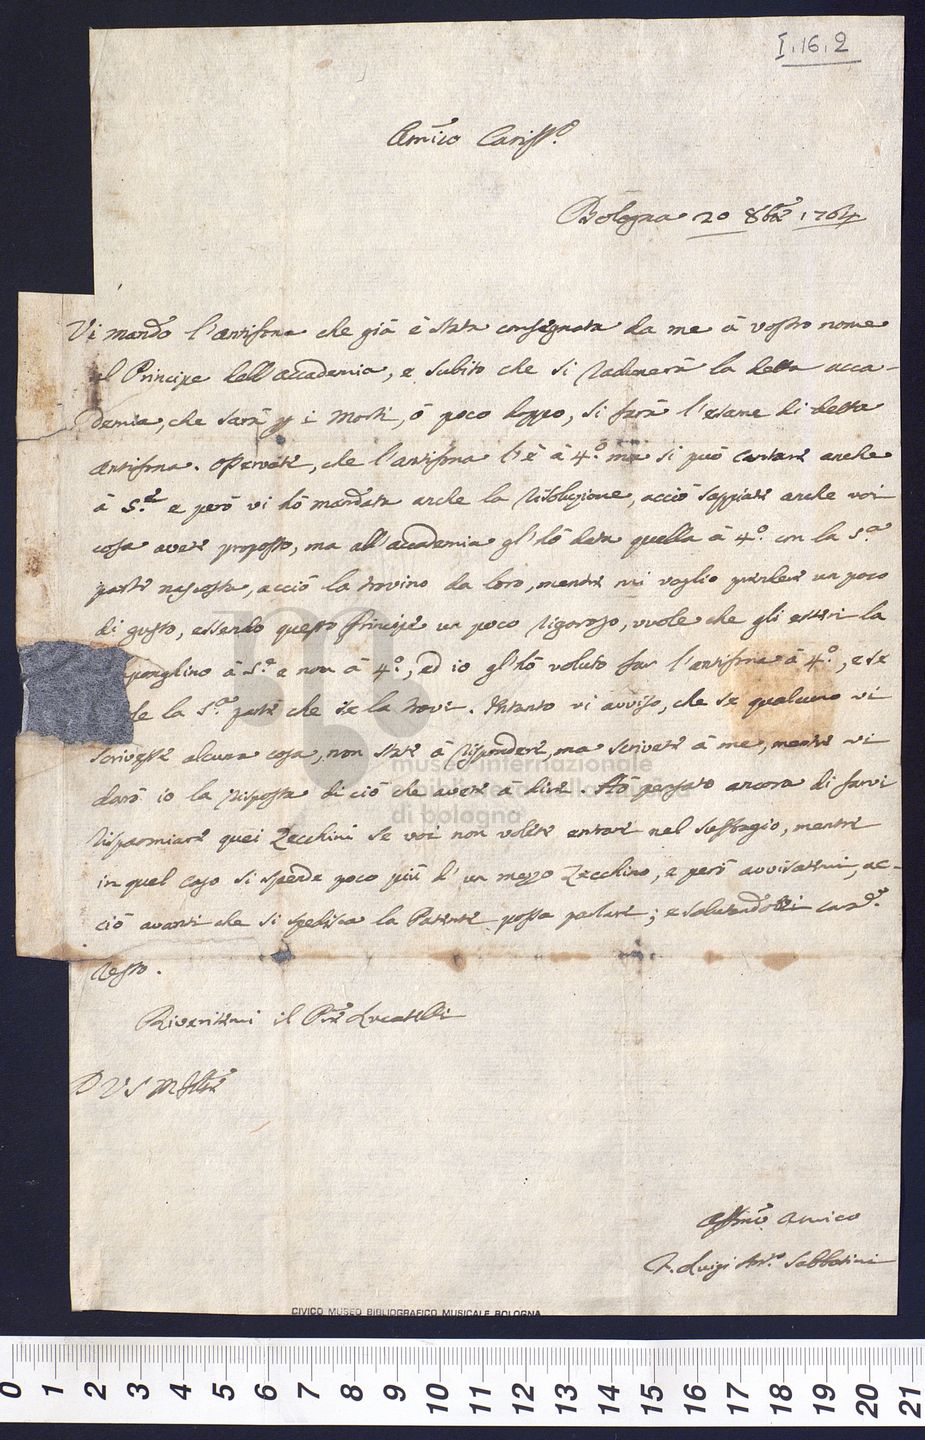 I. 16. 2
Amico Cariss.o
Bologna 20 8bre 1764
Vi mando l'antifona che già è stata consegnata da me à vostro nome
al Principe dell'accademia, e subito che si radunerà la detta acca-
demia, che sarà p i Morti, ò poco doppo, si farà l'esame di detta
antifona. Osservate, che l'antifona l'è à 4.o ma si può cantare anche
à 5.e e però vi hò mandata anche la risoluzione, acciò sappiate anche voi
cosa avete proposto, ma all'accademia gl'hò data quella à 4.o con la 5.a
parte nascosta, acciò la trovino da loro, mentre mi voglio prendere un poco
di gusto, essendo questo Principe un poco rigoroso, vuole che gli esteri la
à 5.e e non à 4.o, ed io gl'hò voluto far l'antifona à 4.o, e se
la 5.a parte che se la trovi. Intanto vi avviso, che se qualcuno vi
scrivesse alcuna cosa, non state à rispondere, ma scrivete à me, mentre vi
darò io la risposta di ciò che avete à dire. Hò pensato ancora di farvi
risparmiare quei Zecchini se voi non volete entrare nel suffragio, mentre
in quel caso si spende poco più d'un mezzo Zecchino, e però avvisatemi, ac-
ciò avanti che si spedisca la Patente possa parlare; e salutandovi car.e
resto.
Riveritemi il P.re Lucatelli
D V S M Ill.re
Aff.mo Amico
F. Luigi Ant.o Sabbatini
museo internazionale
e biblioteca della musica
di bologna
CIVICO MUSEO BIBLIOGRAFICO MUSICALE BOLOGNA
0 1 2 3 4 5 6 7 8 9 10 11 12 13 14 15 16 17 18 19 20 21